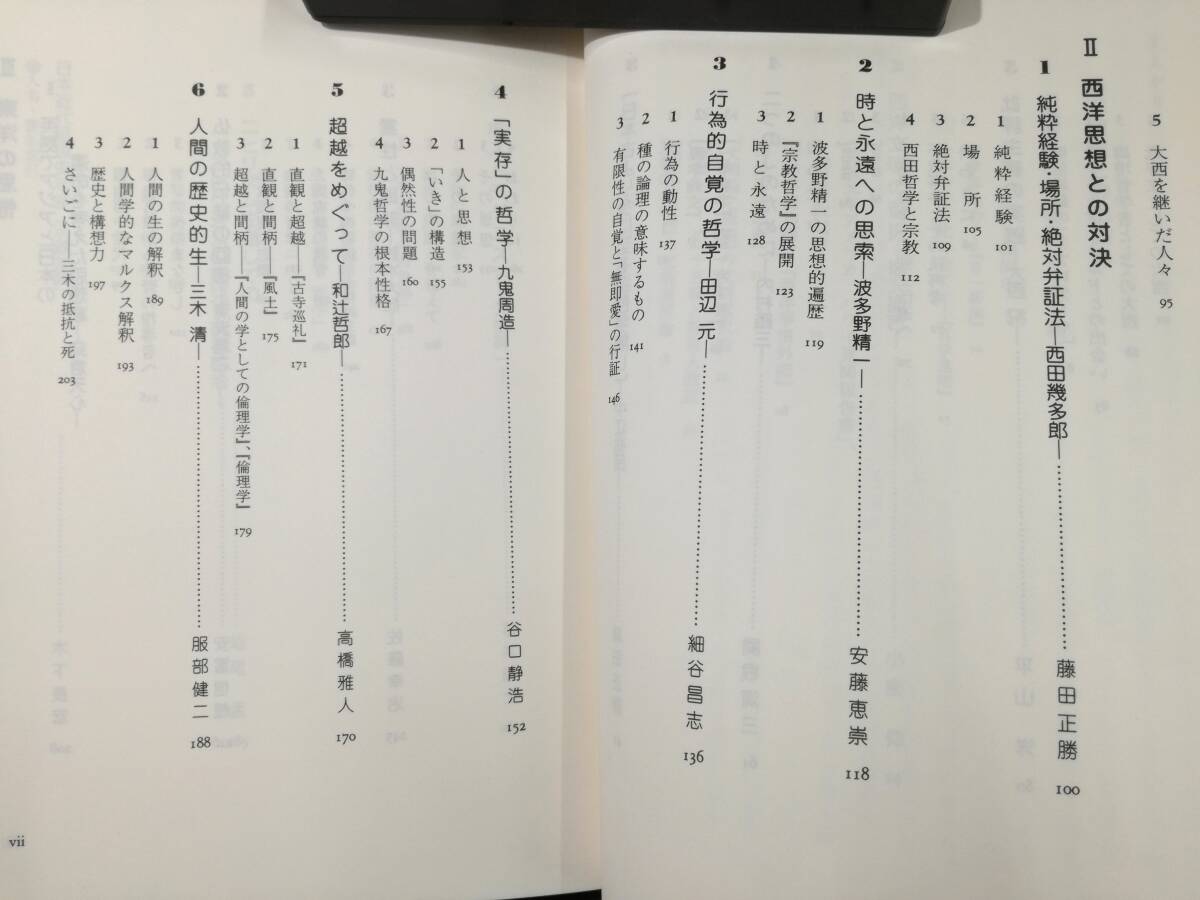 5 大西を継いだ人々 95
Ⅱ 西洋思想との対決
1 純粋経験・場所・絶対弁証法―西田幾多郎―……藤田正勝 100
1 純粋経験 101
2 場所 105
3 絶対弁証法 109
4 西田哲学と宗教 112
2 時と永遠への思索―波多野精一―……安藤恵崇 118
1 波多野精一の思想的遍歴 119
2 『宗教哲学』の展開 123
3 時と永遠 128
3 行為的自覚の哲学―田辺 元―……細谷昌志 136
1 行為の動性 137
2 種の論理の意味するもの 141
3 有限性の自覚と「無即愛」の行証 146
4 「実存」の哲学―九鬼周造―……谷口静浩 152
1 人と思想 153
2 「いき」の構造 155
3 偶然性の問題 160
4 九鬼哲学の根本性格 167
5 超越をめぐって―和辻哲郎―……高橋雅人 170
1 直観と超越――『古寺巡礼』 171
2 直観と間柄――『風土』 175
3 超越と間柄――『人間の学としての倫理学』、『倫理学』 179
6 人間の歴史的生―三木 清―……服部健二 188
1 人間の生の解釈 189
2 人間学的なマルクス解釈 193
3 歴史と構想力 197
4 さいごに――三木の抵抗と死 203
vii